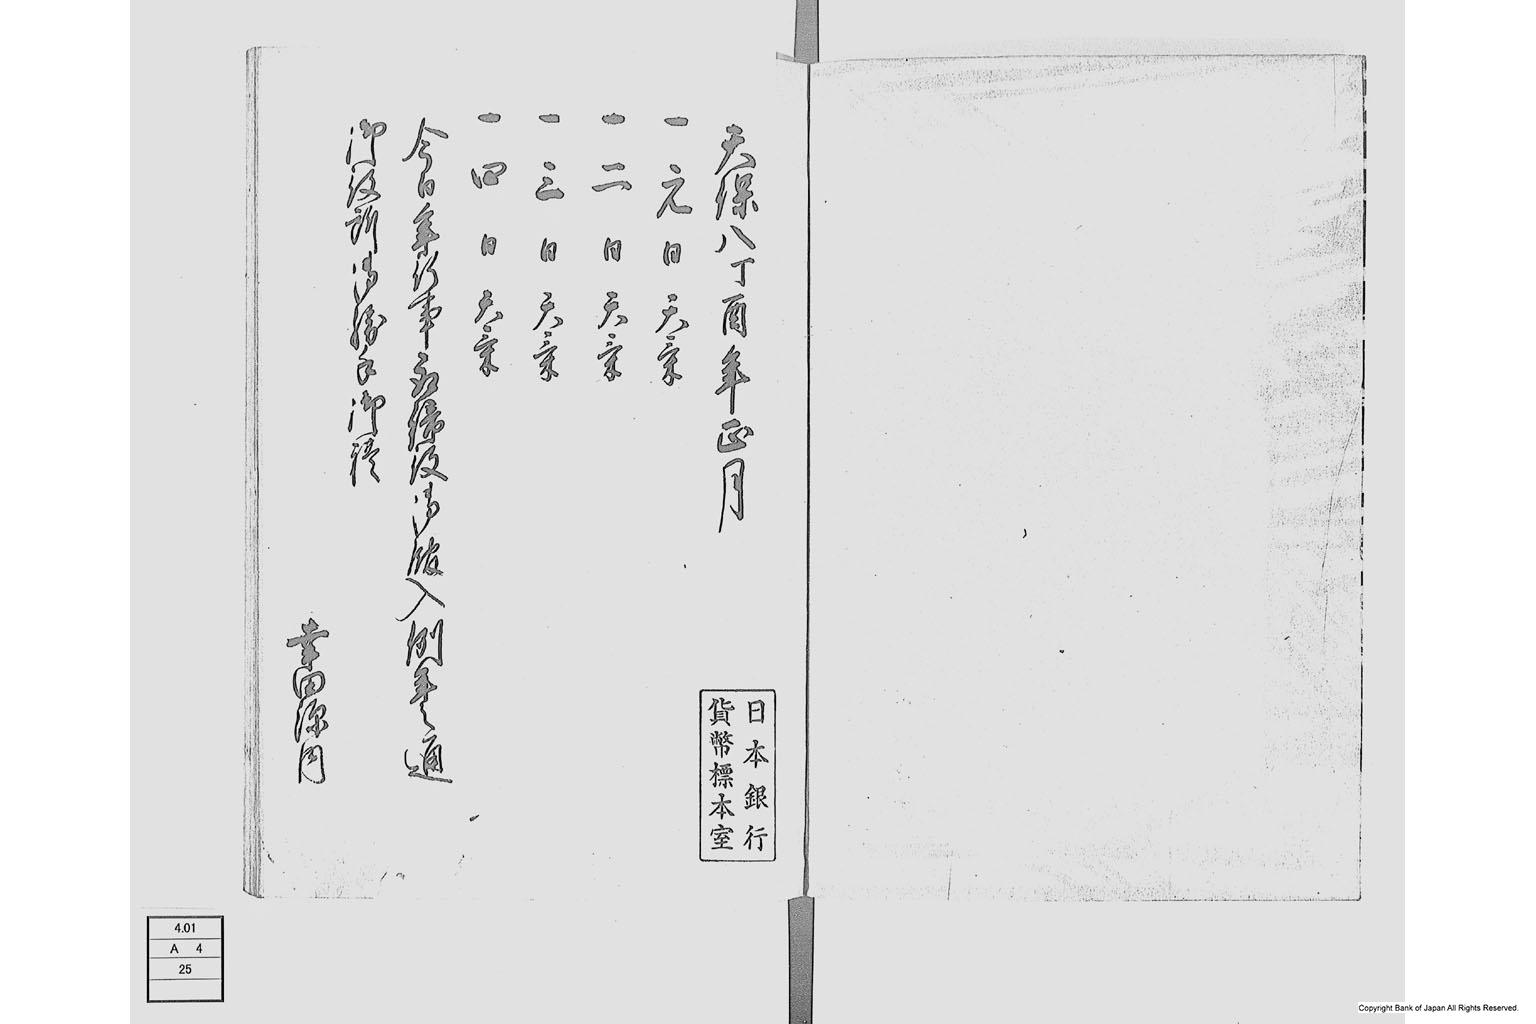 天保八丁酉年正月
一元日天気
一二日天気
一三日天気
一四日天気
今日年行事
入例年之通
御役所
御礼
幸田源内
日本銀行
貨幣標本室
4.01
A 4
25
Copyright Bank of Japan All Rights Reserved.